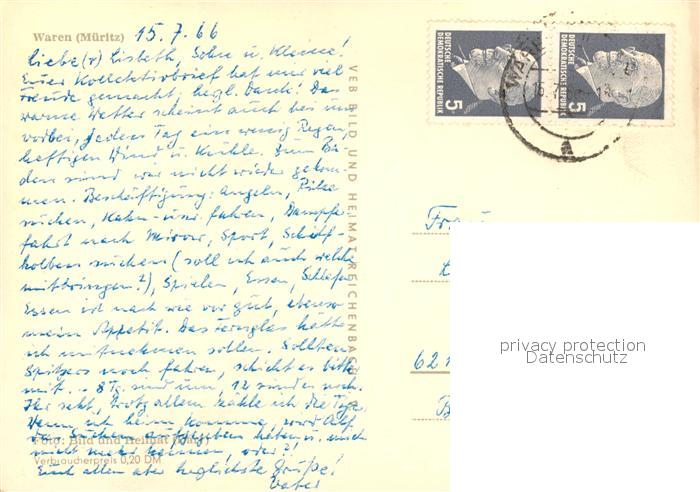 Waren (Müritz) 15.7.66
Liebe(r) Lisbeth, Sohn u. Kleine!
Euer Kollektivbrief hat mir viel
Freude gemacht, hzgl. Dank! Das
warme Wetter scheint auch bei uns
vorbei, jeden Tag ein wenig Regen,
heftigen Wind u. Kühle. Zum Ba-
den sind wir nicht wieder gekom-
men. Beschäftigung: Angeln, Pilze
suchen, Kahn- fahren, Dampfer-
fahrt nach Mirow, Sport, Schilf-
kolben suchen (soll ich auch welche
mitbringen?), Spielen, Essen, Schlafen
Essen ist nach wie vor gut, ebenso
mein Appetit. Das Fernglas hätte
ich mitnehmen sollen. Sollten
Spitzers noch fahren, schickt es bitte
mit. - 8 Tg. sind um, 12 sind es noch.
Ihr seht, trotz allem zähle ich die Tage.
Wenn ich heim komme, wird Alf.
das Suchen aufgegeben haben u. mich
nicht mehr kennen, oder?!
Euch allen aber herzlichste Grüße!
Vater
Foto: Bild und Heimat
Verbraucherpreis 0,20 DM
VEB BILD UND HEIMAT REICHENBACH
DEUTSCHE DEMOKRATISCHE REPUBLIK 5
DEUTSCHE DEMOKRATISCHE REPUBLIK 5
Frau
62
privacy protection
Datenschutz